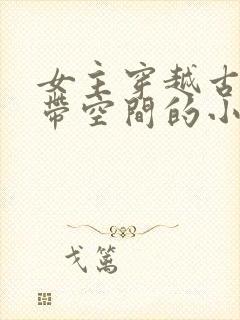 女主穿越古
帶空間的小
戈篱